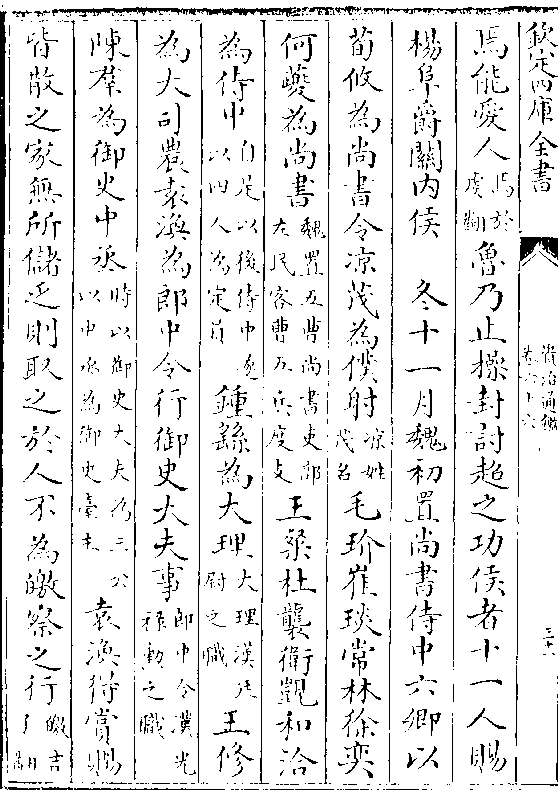 欽定四庫全書
資治通鑑
卷六十六
焉能愛人焉於虔翻魯乃止操封討超之功侯者十一人賜
楊阜爵關内侯　冬十一月魏初置尚書侍中六卿以
荀攸為尚書令凉茂為僕射凉姓茂名毛玠崔琰常林徐奕
何夔為尚書魏置五曹尚書吏部左民客曹五兵度支王粲杜襲衛覬和洽
為侍中自是以後侍中遂以四人為定員鍾繇為大理大理漢廷尉之職王修
為大司農袁渙為郎中令行御史大夫事郎中令漢光禄勳之職
陳羣為御史中丞時以御史大夫為三公以中丞為御史臺主袁渙得賞賜
皆散之家無所儲乏則取之於人不為皦察之行皦吉了